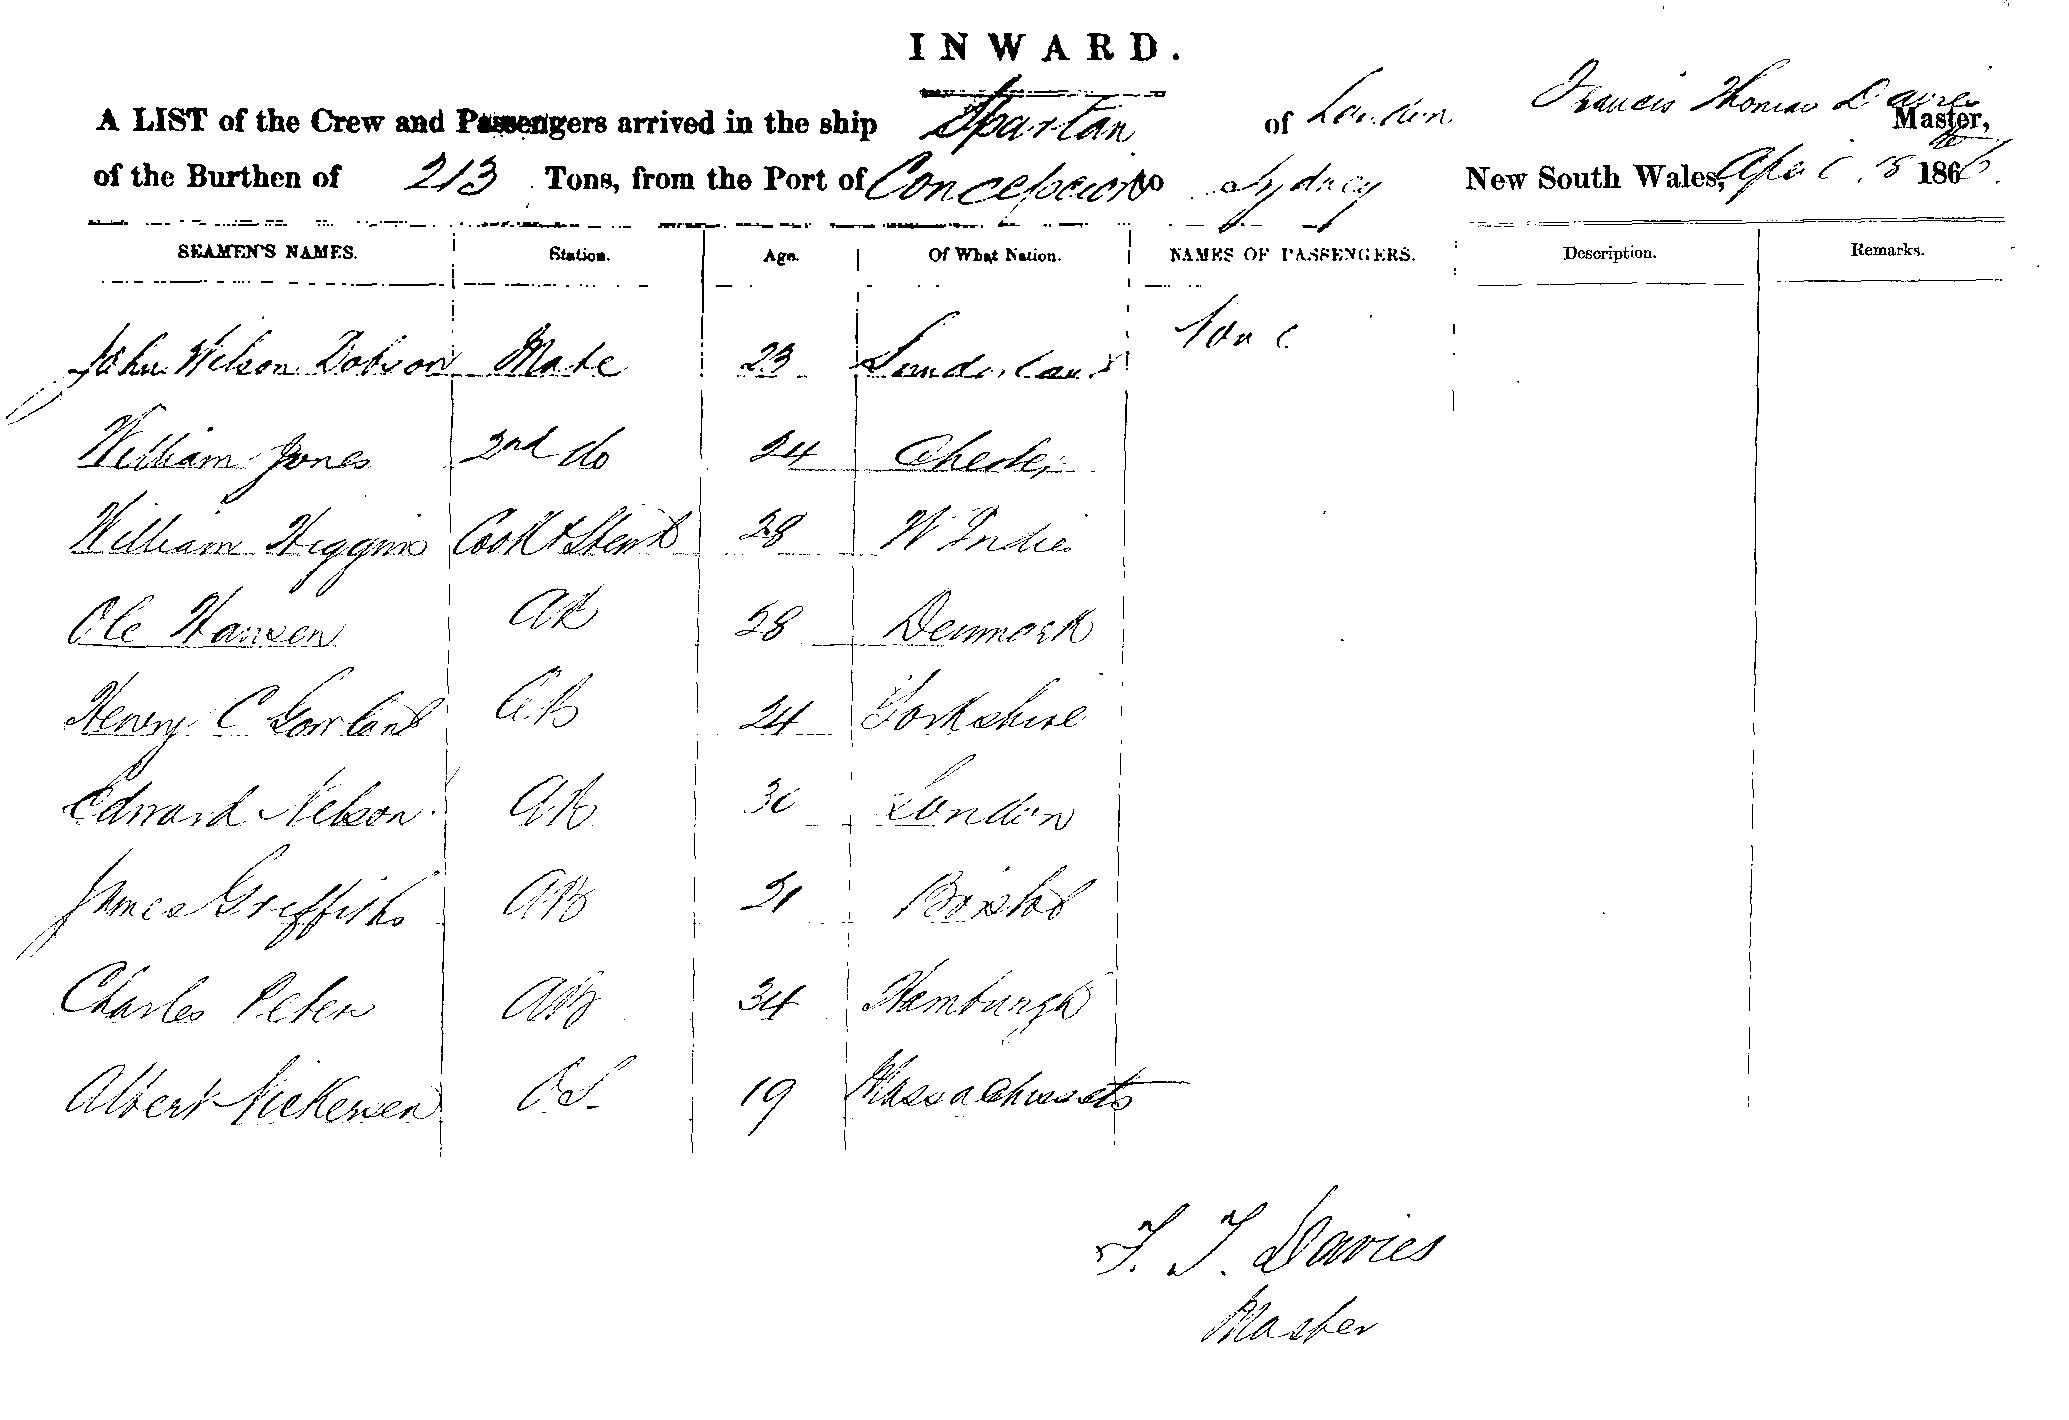 INWARD.
A LIST of the Crew and Passengers arrived in the ship Spartan of London Francis Thomas Davies Master,
of the Burthen of 213 Tons, from the Port of Concepcion to Sydney New South Wales, April 1866
SEAMEN'S NAMES. Station. Age. Of What Nation. NAMES OF PASSENGERS. Description. Remarks.
John Wilson Dobson Mate 23 Sunderland None
William Jones 2nd do 24 Chester
William Higgins Cook & Stewd 28 W Indies
Ole Hansen AB 28 Denmark
Henry C Gowland AB 24 Yorkshire
Edward Nelson AB 30 London
James Griffiths AB 21 Bristol
Charles Peters AB 34 Hamburgh
Albert Nickersen OS 19 Massachussets
F. T. Davies
Master